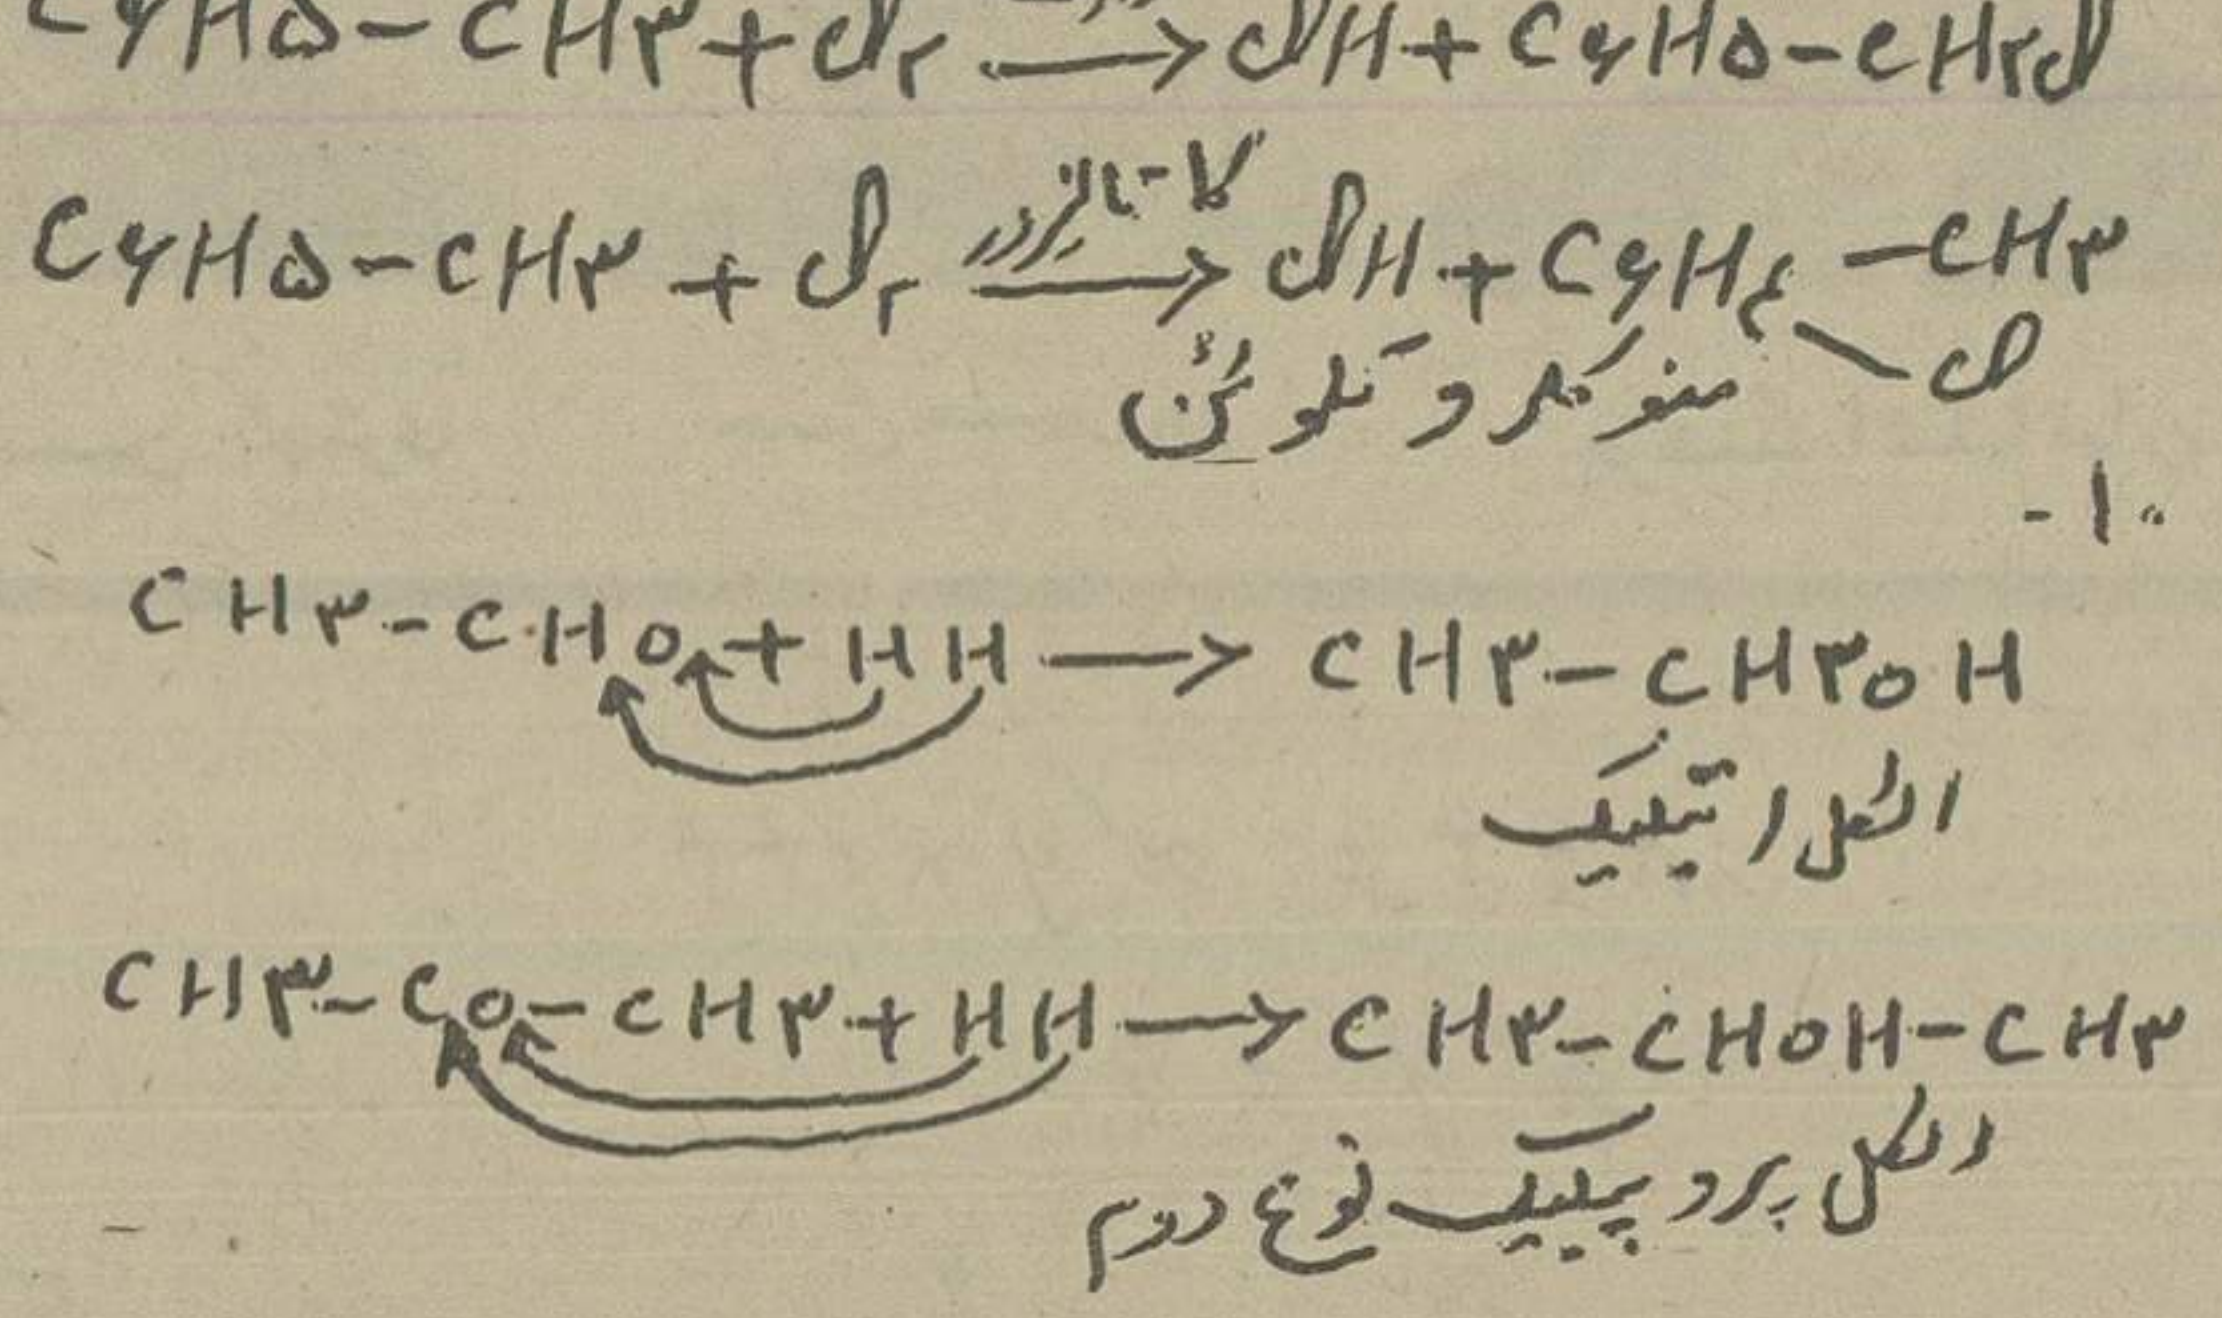 C۶H۵-CH۳+Cl۲ → ClH+C۶H۵-CH۲Cl
C۶H۵-CH۳ + Cl۲ کاتالیزور → ClH+C۶H۴ -CH۳
Cl
منوکلرو تلوئن
۱۰-
CH۳-CHO + HH → CH۳-CH۳OH
الکل اتیلیک
CH۳-CO-CH۳+HH → CH۳-CHOH-CH۳
الکل پروپیلیک نوع دوم